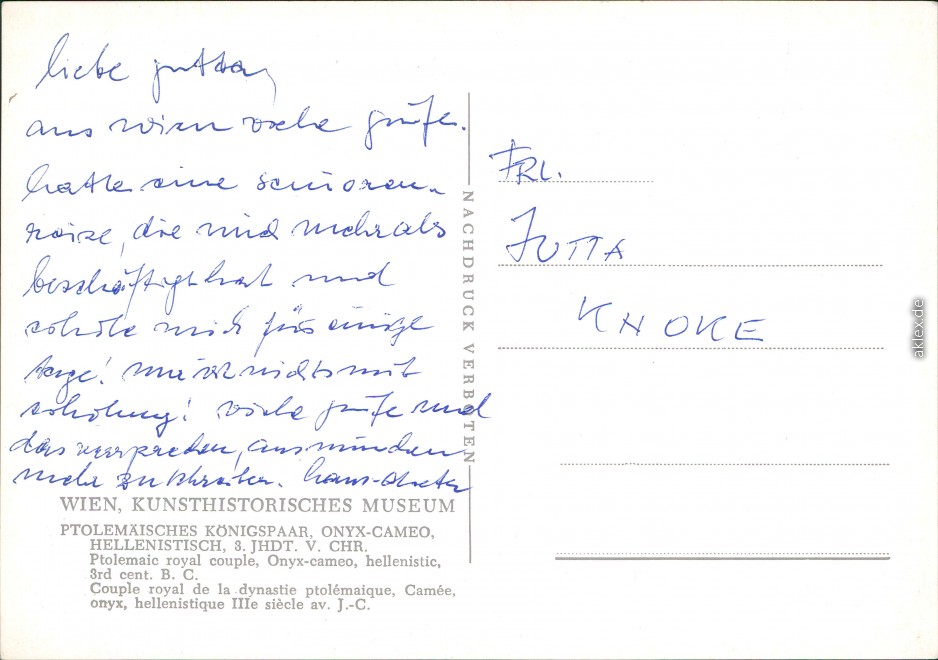 liebe jutta,
aus wien viele grüße.
hatte eine senioren-
reise, die mich mehr als
beschäftigt hat und
erholte mich für einige
tage! nun ist nichts mit
erholung! viele grüße und
das versprechen, aus münchen
mehr zu schreiben. hans-dieter
WIEN, KUNSTHISTORISCHES MUSEUM
PTOLEMÄISCHES KÖNIGSPAAR, ONYX-CAMEO,
HELLENISTISCH, 3. JHDT. V. CHR.
Ptolemaic royal couple, Onyx-cameo, hellenistic,
3rd cent. B. C.
Couple royal de la dynastie ptolémaique, Camée,
onyx, hellenistique IIIe siècle av. J.-C.
NACHDRUCK VERBOTEN
FRL.
JUTTA
KNOKE
aklex.de